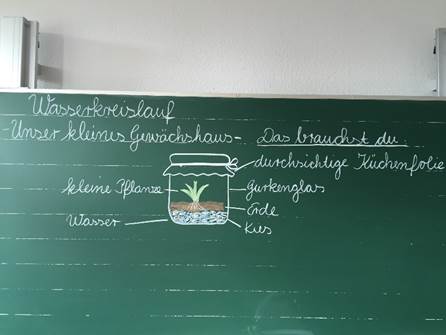 Wasserkreislauf
-Unser kleines Gewächshaus-
Das brauchst du
durchsichtige Küchenfolie
kleine Pflanze
Gurkenglas
Erde
Wasser
Kies